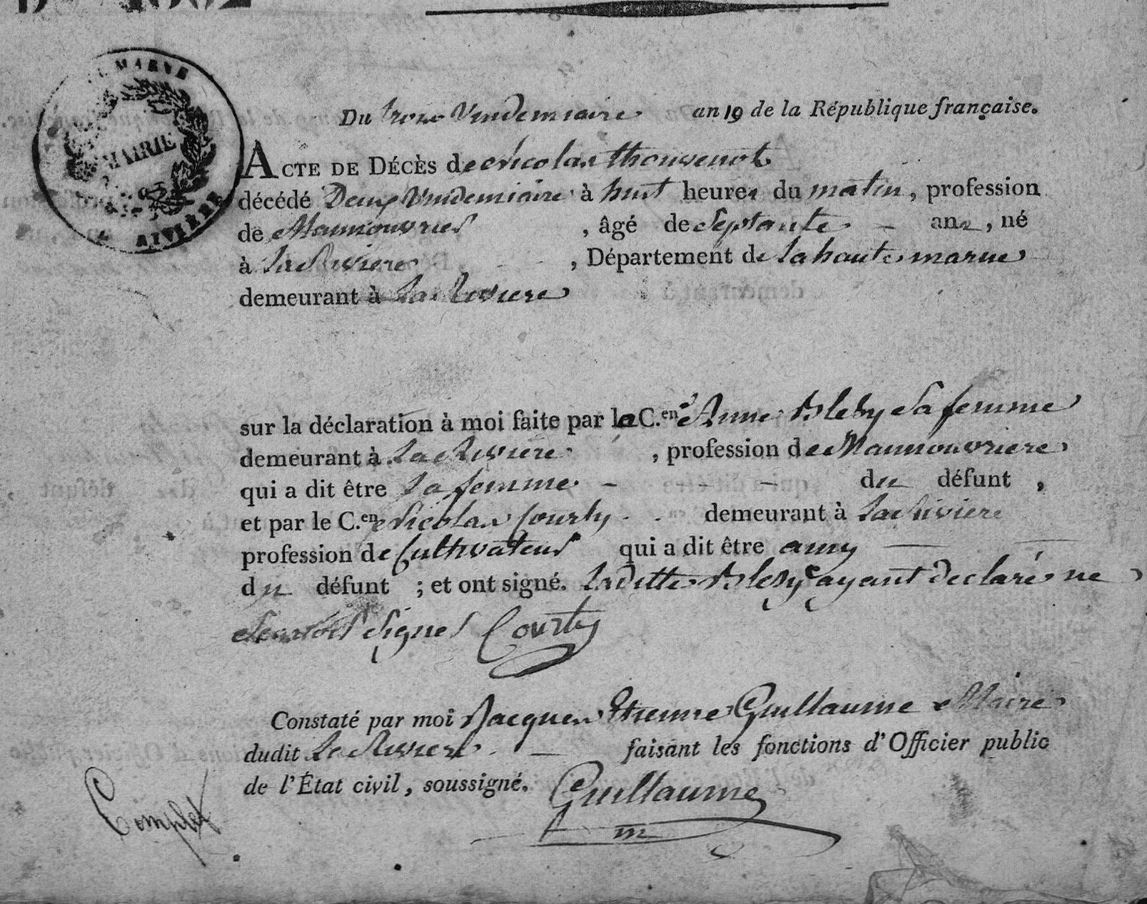 MARNE
MAIRIE
RIVIÈRE
Du trois Vendemiaire an 19 de la République française.
ACTE DE DÉCÈS de Nicolas Thouvenot
décédé Deux Vendemiaire à huit heures du matin, profession
de Manouvrier, âgé de Septante ans, né
à La Riviere, Département de la haute marne
demeurant à La Riviere
sur la déclaration à moi faite par la C.en Anne sa femme
demeurant à La Riviere, profession de Manouvriere
qui a dit être sa femme du défunt,
et par le C.en Nicolas Courty demeurant à La Riviere
profession de Cultivateur qui a dit être amy
du défunt ; et ont signé. laditte ayant declaré ne
Scavoir Signer Courty
Constaté par moi Jacques Etienne Guillaume Maire
dudit La Riviere faisant les fonctions d'Officier public
de l'État civil, soussigné. Guillaume
m
Complet